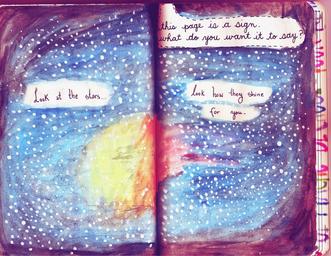 Look at the stars.
this page is a sign.
what do you want it to say?
Look how they shine
for you.